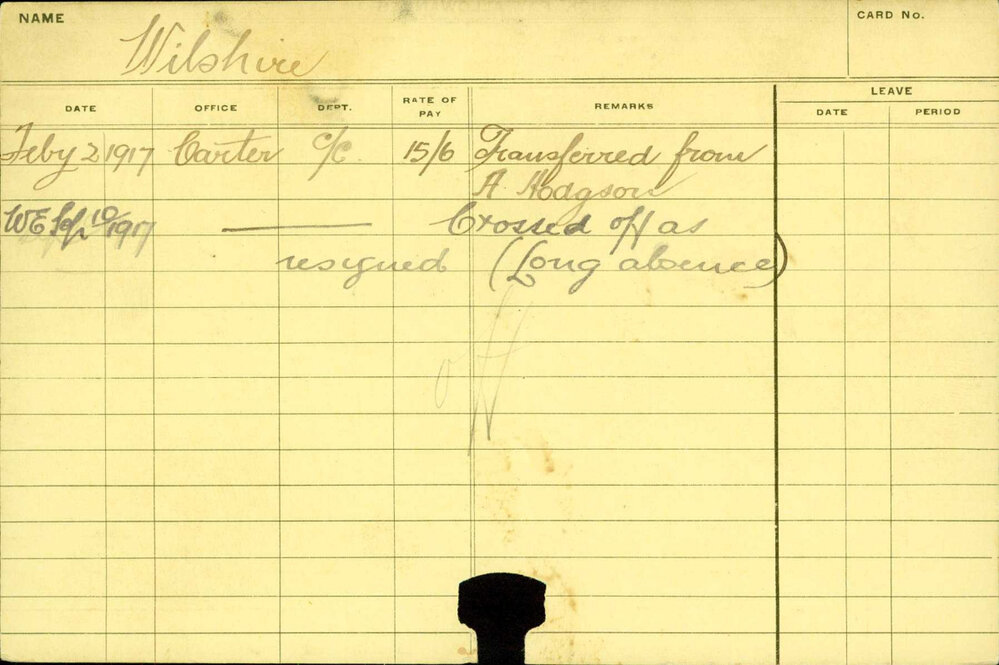 NAME
CARD No.
Wilshire
DATE OFFICE DEPT. RATE OF PAY REMARKS LEAVE
DATE PERIOD
Feby 2 1917 Carter C/C. 15/6 Transferred from
A. Hodgson
WE Sep 10/1917 — Crossed off as
resigned (Long absence)
off